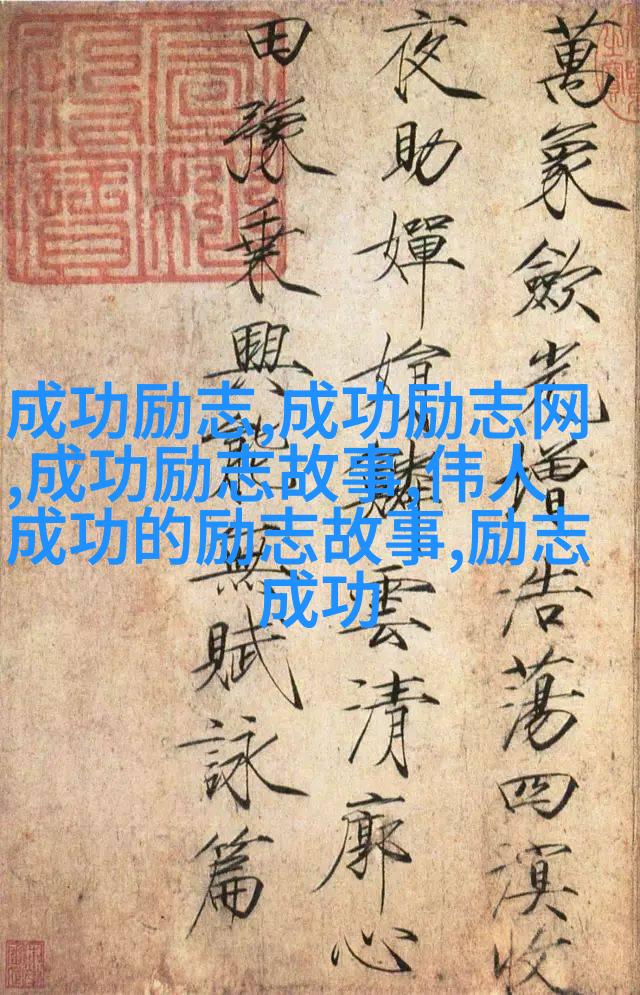 萬象歛光增浩蕩四溟收
夜助嬋娟雲清廓心
田豫乗興能無賦詠篇
成功励志,成功励志网
,成功励志故事,伟人
成功的励志故事,励志
成功